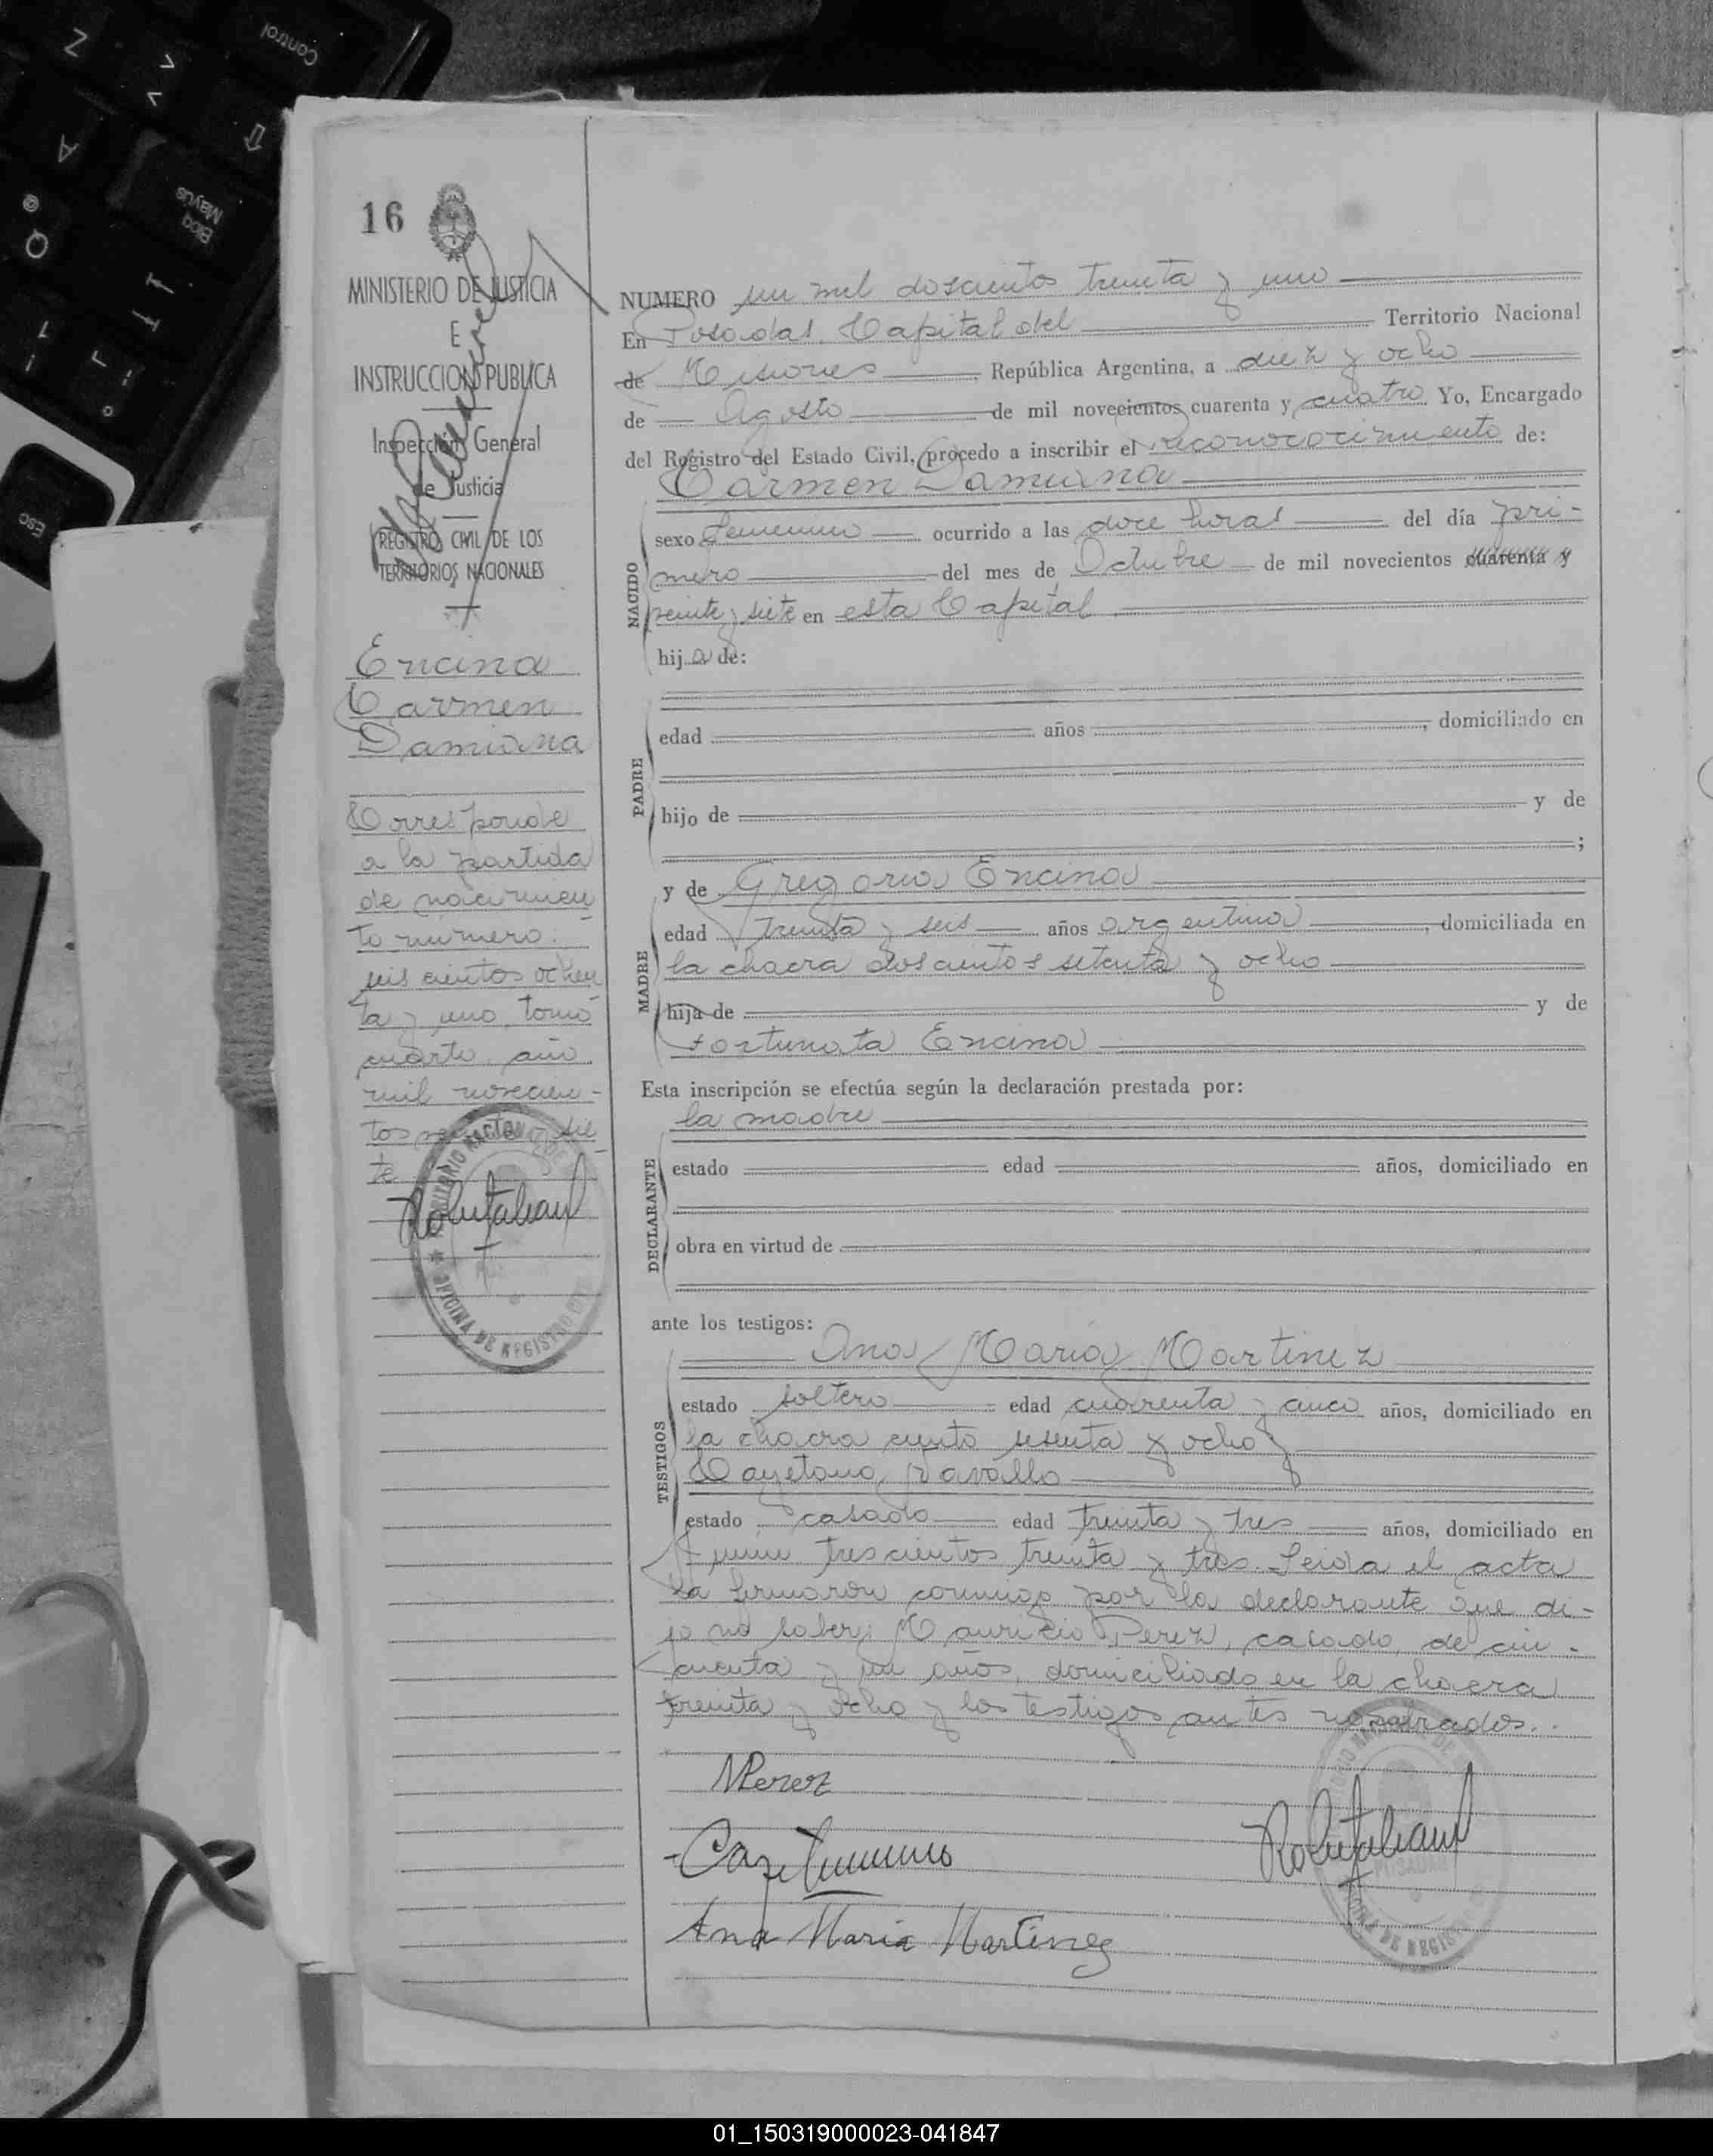 Control
Z
A
Bloq
Mayús
@
Q
Esc
16
MINISTERIO DE JUSTICIA
E
INSTRUCCION PUBLICA
Inspección General
de Justicia
REGISTRO CIVIL DE LOS
TERRITORIOS NACIONALES
Encina
Carmen
Damiana
Corresponde
a la partida
de nacimien
to número
seis cientos ochen
ta y uno, tomo
cuarto, año
mil novecien-
tos veinte y sie
te
OFICINA DE REGISTRO
NUMERO un mil doscientos treinta y uno
En Posadas, Capital del Territorio Nacional
de Misiones, República Argentina, a diez y ocho
de Agosto de mil novecientos cuarenta y cuatro Yo, Encargado
del Registro del Estado Civil, procedo a inscribir el reconococimiento de:
Carmen Damiana
NACIDO
sexo femenino ocurrido a las doce horas del día pri-
mero del mes de Octubre de mil novecientos cuarenta y
veinte y siete en esta Capital
hija de:
PADRE
edad años, domiciliado en
hijo de y de
;
MADRE
y de Gregoria Encina
edad treinta y seis años argentina, domiciliada en
la chacra doscientos setenta y ocho
hija de y de
Fortunata Encina
Esta inscripción se efectúa según la declaración prestada por:
la madre
DECLARANTE
estado edad años, domiciliado en
obra en virtud de
ante los testigos:
TESTIGOS
Ana Maria Martinez
estado soltera edad cuarenta y cinco años, domiciliado en
la chacra ciento sesenta y ocho y
Cayetano
estado casado edad treinta y tres años, domiciliado en
Junin trescientos treinta y tres. Leida el acta
la firmaron conmigo por la declarante que di-
jo no saber; Mauricio Perez, casado, de cin-
cuenta y un años, domiciliado en la chacra
treinta y ocho y los testigos antes nombrados.
MPerez
Ana Maria Martinez
POSADAS
01_150319000023-041847